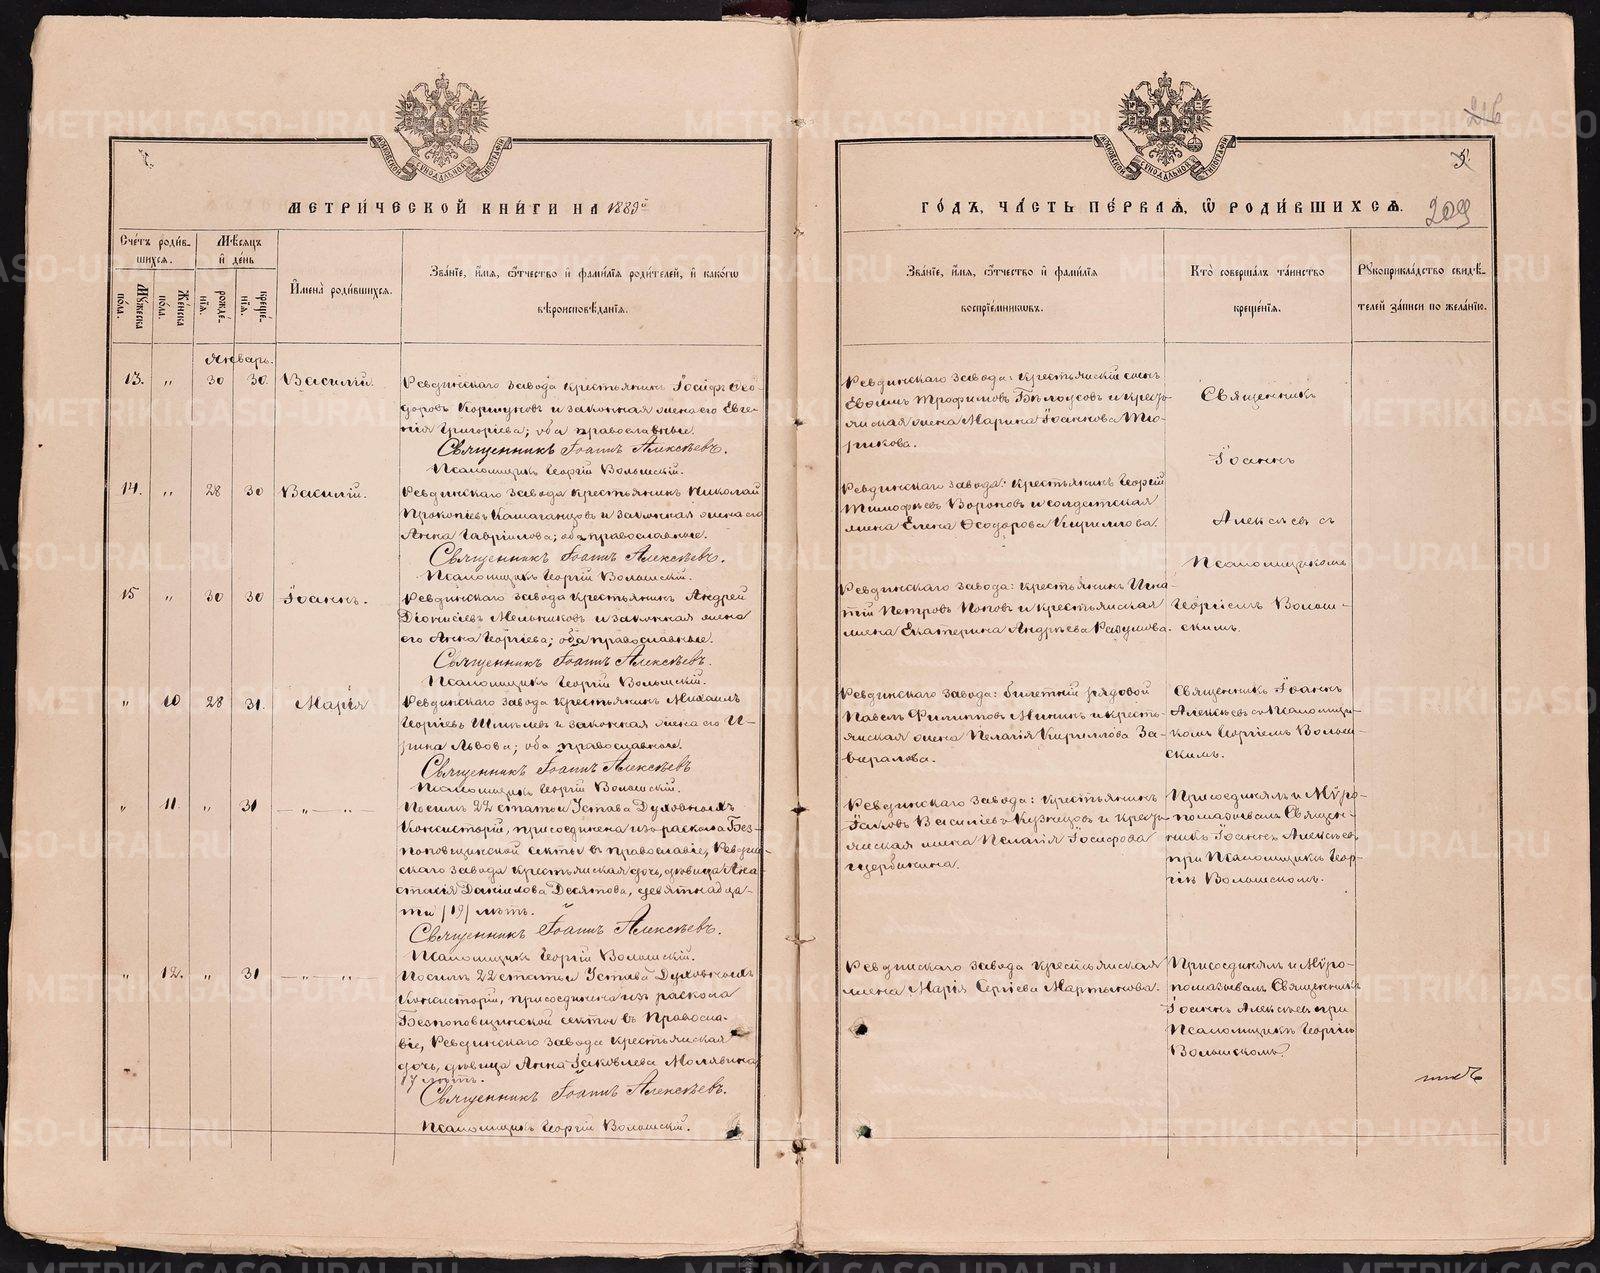 МЕТРИЧЕСКОЙ КНИГИ НА 1889й
Счетъ родив-
шихся.
Мужеска пола.
Женска пола.
Мѣсяцъ и день
рождѣ-
нія.
крещé-
нія.
Имена родившихся.
Званіе, имя, отчество и фамилія родителей, и какого
вѣроисповѣданія.
Январь.
13. " 30 30. Василій.
Ревдинскаго завода крестьянинъ Іосифъ Ѳео-
доровъ Коршуновъ и законная жена его Евге-
нія Григоріева; оба православные.
Священникъ Іоаннъ Алексѣевъ.
Псаломщикъ Георгій Волынскій.
14. " 28 30 Василій.
Ревдинскаго завода крестьянинъ Николай
Прокопіевъ и законная жена его
Анна Гавріилова; оба православные.
Священникъ Іоаннъ Алексѣевъ.
Псаломщикъ Георгій Волынскій.
15 " 30 30 Іоаннъ.
Ревдинскаго завода крестьянинъ Андрей
Діонисіевъ Мельниковъ и законная жена
его Анна Георгіева; оба православные.
Священникъ Іоаннъ Алексѣевъ.
Псаломщикъ Георгій Волынскій.
" 10 28 31. Марія
Ревдинскаго завода крестьянинъ Михаилъ
Георгіевъ и законная жена его И-
рина Львова; оба православные.
Священникъ Іоаннъ Алексѣевъ
Псаломщикъ Георгій Волынскій.
" 11. " 31 — " — "
По силѣ 22 статьи Устава Духовныхъ
Консисторій, присоединена изъ раскола Без-
поповщинской секты въ православіе, Ревдин-
скаго завода крестьянская дочь, дѣвица Ана-
стасія Даніилова Десятова, девятнадца-
ти /19/ лѣтъ.
Священникъ Іоаннъ Алексѣевъ.
Псаломщикъ Георгій Волынскій.
" 12. " 31 — " — "
По силѣ 22 статьи Устава Духовныхъ
Консисторій, присоединена изъ раскола
Безпоповщинской секты въ Правосла-
віе, Ревдинскаго завода крестьянская
дочь, дѣвица Анна Іаковлева Молявина
17 лѣтъ.
Священникъ Іоаннъ Алексѣевъ.
Псаломщикъ Георгій Волынскій.
216
5.
209
ГОДЪ, ЧАСТЬ ПЕРВАЯ, Ѡ РОДИВШИХСЯ.
Званіе, имя, отчество и фамилія
воспріемниковъ.
Кто совершалъ таинство
крещенія.
Рукоприкладство свидѣ-
телей записи по желанію.
Ревдинскаго завода: крестьянскій сынъ
Евѳимъ Трофимовъ Бѣлоусовъ и кресть-
янская жена Марина Іоаннова Тю-
рикова.
Ревдинскаго завода: крестьянинъ Георгій
Тимоѳеевъ Вороновъ и солдатская
жена Елена Ѳеодорова Кириллова.
Ревдинскаго завода: крестьянинъ Игна-
тій Петровъ Поповъ и крестьянская
жена Екатерина Андреева Разумова.
Священникъ
Іоаннъ
Алексѣевъ съ
Псаломщикомъ
Георгіемъ Волын-
скимъ.
Ревдинскаго завода: билетный рядовой
Павелъ Филипповъ Мининъ и кресть-
янская жена Пелагія Кириллова За-
виралова.
Священникъ Іоаннъ
Алексѣевъ съ Псаломщи-
комъ Георгіемъ Волын-
скимъ.
Ревдинскаго завода: крестьянинъ
Іаковъ Василіевъ Кузнецовъ и кресть-
янская жена Пелагія Іосифова
Щербинина.
Присоединялъ и Мѵро-
помазывалъ Священ-
никъ Іоаннъ Алексѣевъ
при Псаломщикѣ Геор-
гіѣ Волынскомъ.
Ревдинскаго завода крестьянская
жена Марія Сергіева Мартынова.
Присоединялъ и Мѵро-
помазывалъ Священникъ
Іоаннъ Алексѣевъ при
Псаломщикѣ Георгіѣ
Волынскомъ.